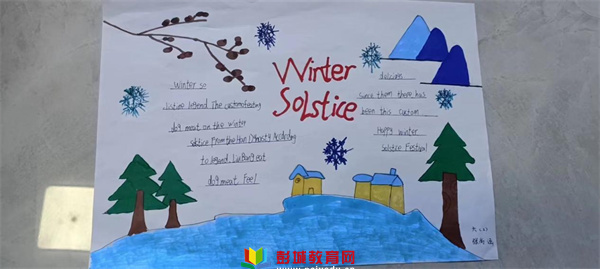 Winter
Solstice
Winter so
lstice legend The custom of eating
dog meat on the winter
solstice from the Han Dynasty According
to legend Liu Bang eat
dog meat Feel
delicious
since then there has
been this custom
Happy winter
solstice Festival
彭城教育网